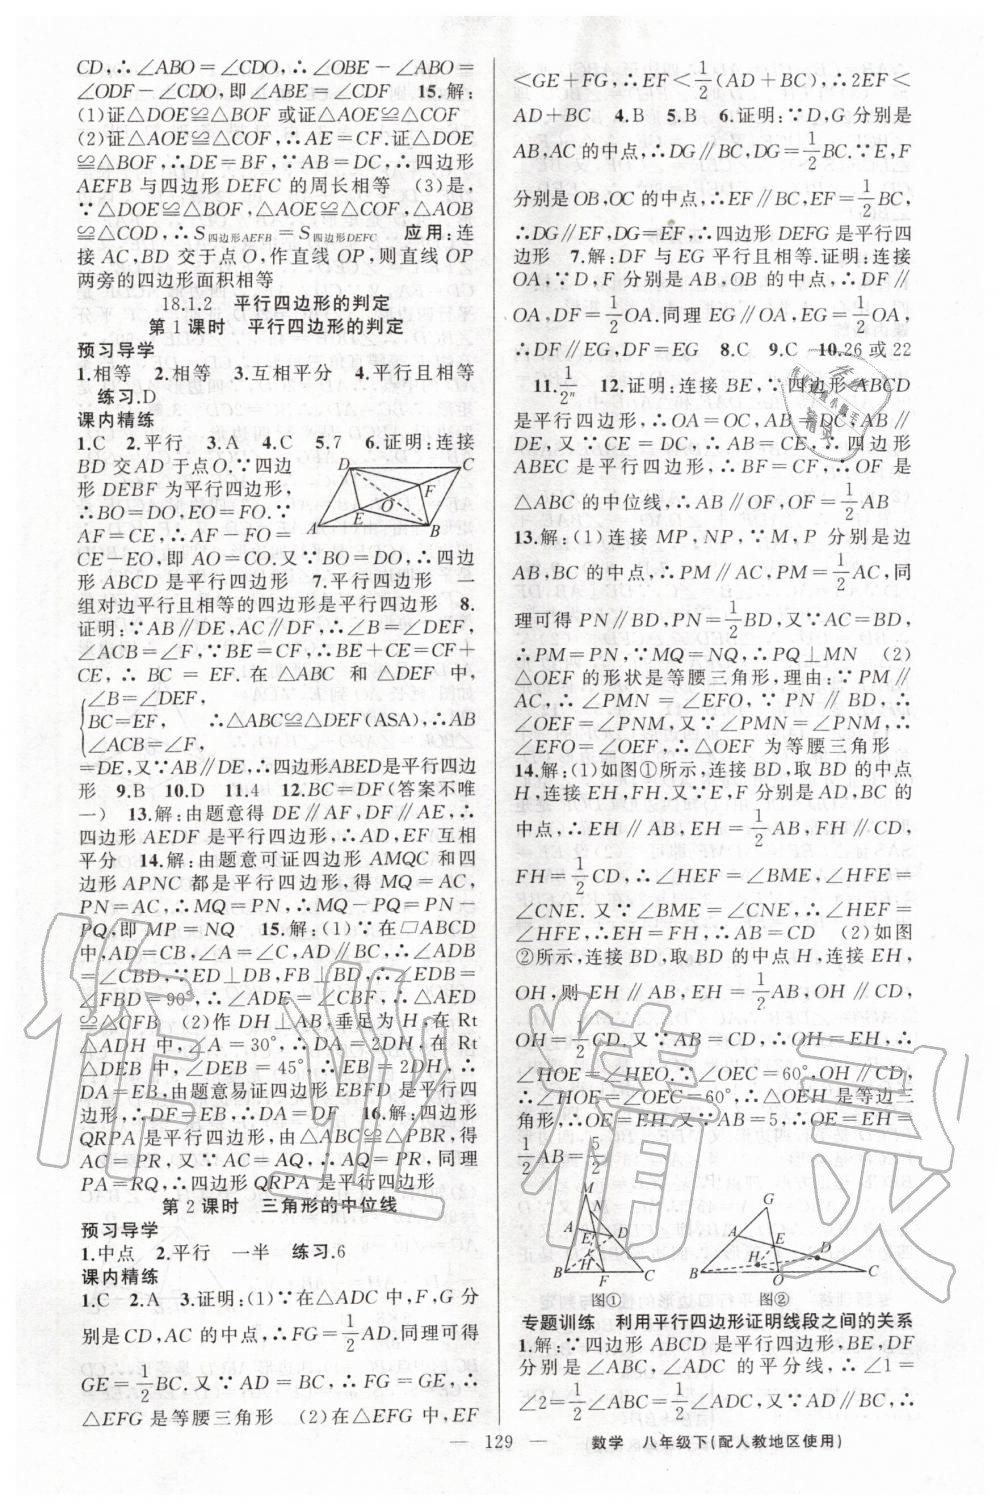 CD,∴∠ABO=∠CDO,∴∠OBE-∠ABO=
∠ODF-∠CDO,即∠ABE=∠CDF 15.解:
(1)证△DOE≌△BOF 或证△AOE≌△COF
(2)证△AOE≌△COF,∴AE=CF.证△DOE
≌△BOF,∴DE=BF,∵AB=DC,∴四边形
AEFB与四边形DEFC的周长相等 (3)是,
∵△DOE≌△BOF,△AOE≌△COF,△AOB
≌△COD,∴S四边形AEFB=S四边形DEFC 应用:连
接AC,BD交于点O,作直线OP,则直线OP
两旁的四边形面积相等
18.1.2 平行四边形的判定
第1课时 平行四边形的判定
预习导学
1.相等 2.相等 3.互相平分 4.平行且相等
练习.D
课内精练
1.C 2.平行 3.A 4.C 5.7 6.证明:连接
BD交AD于点O.∵四边
形DEBF为平行四边形,
∴BO=DO,EO=FO.∵
AF=CE,∴AF-FO=
CE-EO,即AO=CO.又∵BO=DO,∴四边
形ABCD是平行四边形 7.平行四边形 一
组对边平行且相等的四边形是平行四边形 8.
证明:∵AB∥DE,AC∥DF,∴∠B=∠DEF,
∠ACB=∠F,∵BE=CF,∴BE+CE=CF+
CE,∴BC=EF.在△ABC和△DEF中,
∠B=∠DEF,
BC=EF, ∴△ABC≌△DEF(ASA),∴AB
∠ACB=∠F,
=DE,又∵AB∥DE,∴四边形ABED是平行四边
形 9.B 10.D 11.4 12.BC=DF(答案不唯
一) 13.解:由题意得DE∥AF,DF∥AE,∴
四边形AEDF是平行四边形,∴AD,EF互相
平分 14.解:由题意可证四边形AMQC和四
边形APNC都是平行四边形,得MQ=AC,
PN=AC,∴MQ=PN,∴MQ-PQ=PN-
PQ,即MP=NQ 15.解:(1)∵在▱ABCD
中,AD=CB,∠A=∠C,AD∥BC,∴∠ADB
=∠CBD,∵ED⊥DB,FB⊥BD,∴∠EDB=
∠FBD=90°,∴∠ADE=∠CBF,∴△AED
≌△CFB (2)作DH⊥AB,垂足为H,在Rt
△ADH中,∠A=30°,∴DA=2DH,在Rt
△DEB中,∠DEB=45°,∴EB=2DH,∴
DA=EB,由题意易证四边形EBFD是平行四
边形,∴DF=EB,∴DA=DF 16.解:四边形
QRPA是平行四边形,由△ABC≌△PBR,得
AC=PR,又∵AC=AQ,∴AQ=PR,同理
PA=RQ,∴四边形QRPA是平行四边形
第2课时 三角形的中位线
预习导学
1.中点 2.平行 一半 练习.6
课内精练
1.C 2.A 3.证明:(1)∵在△ADC中,F,G分
别是CD,AC的中点,∴FG=1/2AD.同理可得
GE=1/2BC.又∵AD=BC,∴FG=GE,∴
△EFG是等腰三角形 (2)在△EFG中,EF
<GE+FG,∴EF<1/2(AD+BC),∴2EF<
AD+BC 4.B 5.B 6.证明:∵D,G分别是
AB,AC的中点,∴DG∥BC,DG=1/2BC.∵E,F
分别是OB,OC的中点,∴EF∥BC,EF=1/2BC,
∴DG∥EF,DG=EF,∴四边形DEFG是平行四
边形 7.解:DF与EG平行且相等.证明:连接
OA,∵D,F分别是AB,OB的中点,∴DF∥
OA,DF=1/2OA.同理EG∥OA,EG=1/2OA,
∴DF∥EG,DF=EG 8.C 9.C 10.26或22
11.1/2ⁿ 12.证明:连接BE,∵四边形ABCD
是平行四边形,∴OA=OC,AB=DC,AB∥
DE,又∵CE=DC,∴AB=CE,∴四边形
ABEC是平行四边形,∴BF=CF,∴OF是
△ABC的中位线,∴AB∥OF,OF=1/2AB
13.解:(1)连接MP,NP,∵M,P分别是边
AB,BC的中点,∴PM∥AC,PM=1/2AC,同
理可得PN∥BD,PN=1/2BD,又∵AC=BD,
∴PM=PN,∵MQ=NQ,∴PQ⊥MN (2)
△OEF的形状是等腰三角形,理由:∵PM∥
AC,∴∠PMN=∠EFO,∵PN∥BD,∴
∠OEF=∠PNM,又∵∠PMN=∠PNM,∴
∠EFO=∠OEF,∴△OEF为等腰三角形
14.解:(1)如图①所示,连接BD,取BD的中点
H,连接EH,FH.又∵E,F分别是AD,BC的
中点,∴EH∥AB,EH=1/2AB,FH∥CD,
FH=1/2CD,∴∠HEF=∠BME,∠HFE=
∠CNE.又∵∠BME=∠CNE,∴∠HEF=
∠HFE,∴EH=FH,∴AB=CD (2)如图
②所示,连接BD,取BD的中点H,连接EH,
OH,则EH∥AB,EH=1/2AB,OH∥CD,
OH=1/2CD.又∵AB=CD,∴HO=HE,∴
∠HOE=∠HEO.∵∠OEC=60°,∴∠HEO
=∠HOE=∠OEC=60°,∴△OEH是等边三
角形,∴OE=EH.又∵AB=5,∴OE=EH=
1/2AB=5/2
图① 图②
专题训练 利用平行四边形证明线段之间的关系
1.解:∵四边形ABCD是平行四边形,BE,DF
分别是∠ABC,∠ADC的平分线,∴∠1=
∠2=1/2∠ABC=1/2∠ADC,又∵AD∥BC,∴
— 129 — 数学 八年级下(配人教地区使用)
作业精灵